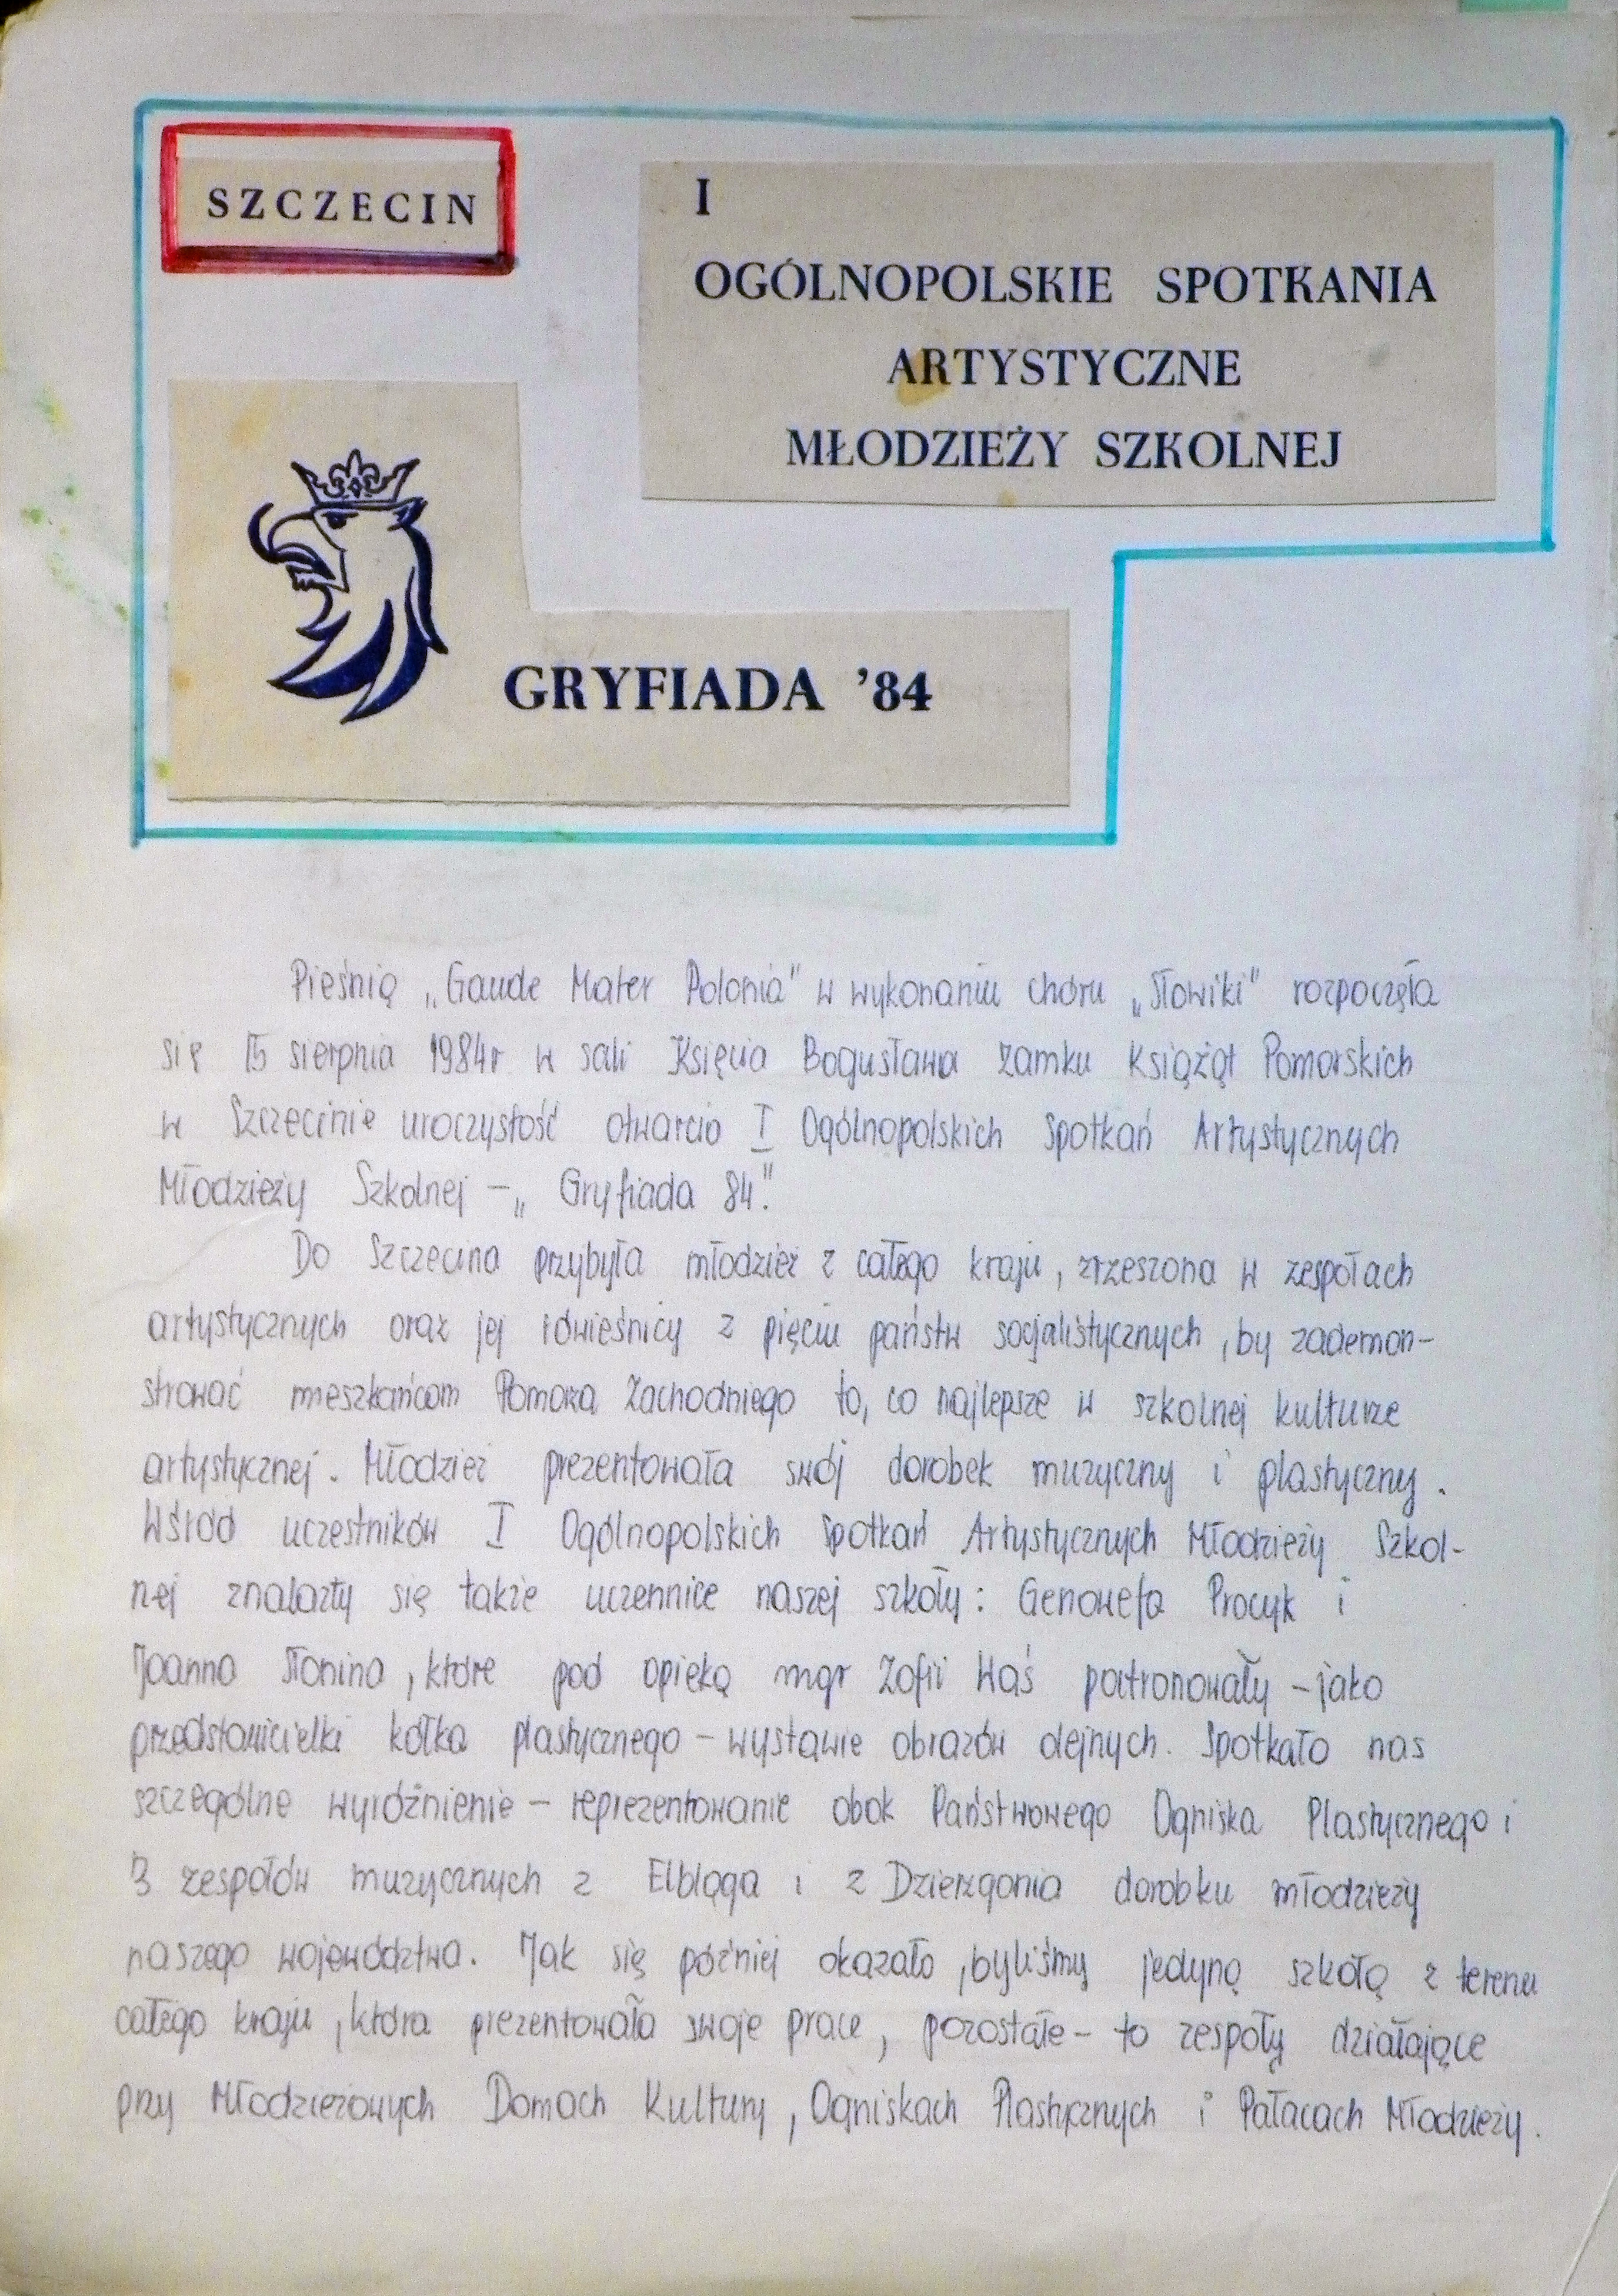 SZCZECIN
I
OGÓLNOPOLSKIE SPOTKANIA
ARTYSTYCZNE
MŁODZIEŻY SZKOLNEJ
GRYFIADA '84
Pieśnią „Gaude Mater Polonia" w wykonaniu chóru „Słowiki" rozpoczęła
się 15 sierpnia 1984r w sali Księcia Bogusława Zamku Książąt Pomorskich
w Szczecinie uroczystość otwarcia I Ogólnopolskich Spotkań Artystycznych
Młodzieży Szkolnej – „Gryfiada 84".
Do Szczecina przybyła młodzież z całego kraju, zrzeszona w zespołach
artystycznych oraz jej rówieśnicy z pięciu państw socjalistycznych, by zademon-
strować mieszkańcom Pomorza Zachodniego to, co najlepsze w szkolnej kulturze
artystycznej. Młodzież prezentowała swój dorobek muzyczny i plastyczny.
Wśród uczestników I Ogólnopolskich Spotkań Artystycznych Młodzieży Szkol-
nej znalazły się także uczennice naszej szkoły: Genowefa Procyk i
Joanna Słonina, które pod opieką mgr Zofii Waś patronowały – jako
przedstawicielki kółka plastycznego – wystawie obrazów olejnych. Spotkało nas
szczególne wyróżnienie – reprezentowanie obok Państwowego Ogniska Plastycznego i
3 zespołów muzycznych z Elbląga i z Dzierzgonia dorobku młodzieży
naszego województwa. Jak się później okazało, byliśmy jedyną szkołą z terenu
całego kraju, która prezentowała swoje prace, pozostałe – to zespoły działające
przy Młodzieżowych Domach Kultury, Ogniskach Plastycznych i Pałacach Młodzieży.